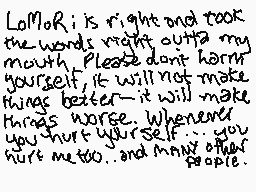 LoMoRi is right and took
the words right outta my
mouth. Please dont harm
yourself, it will not make
things better-it will make
things worse. Whenever
you hurt yourself... you
hurt me too..and MANY other
people.